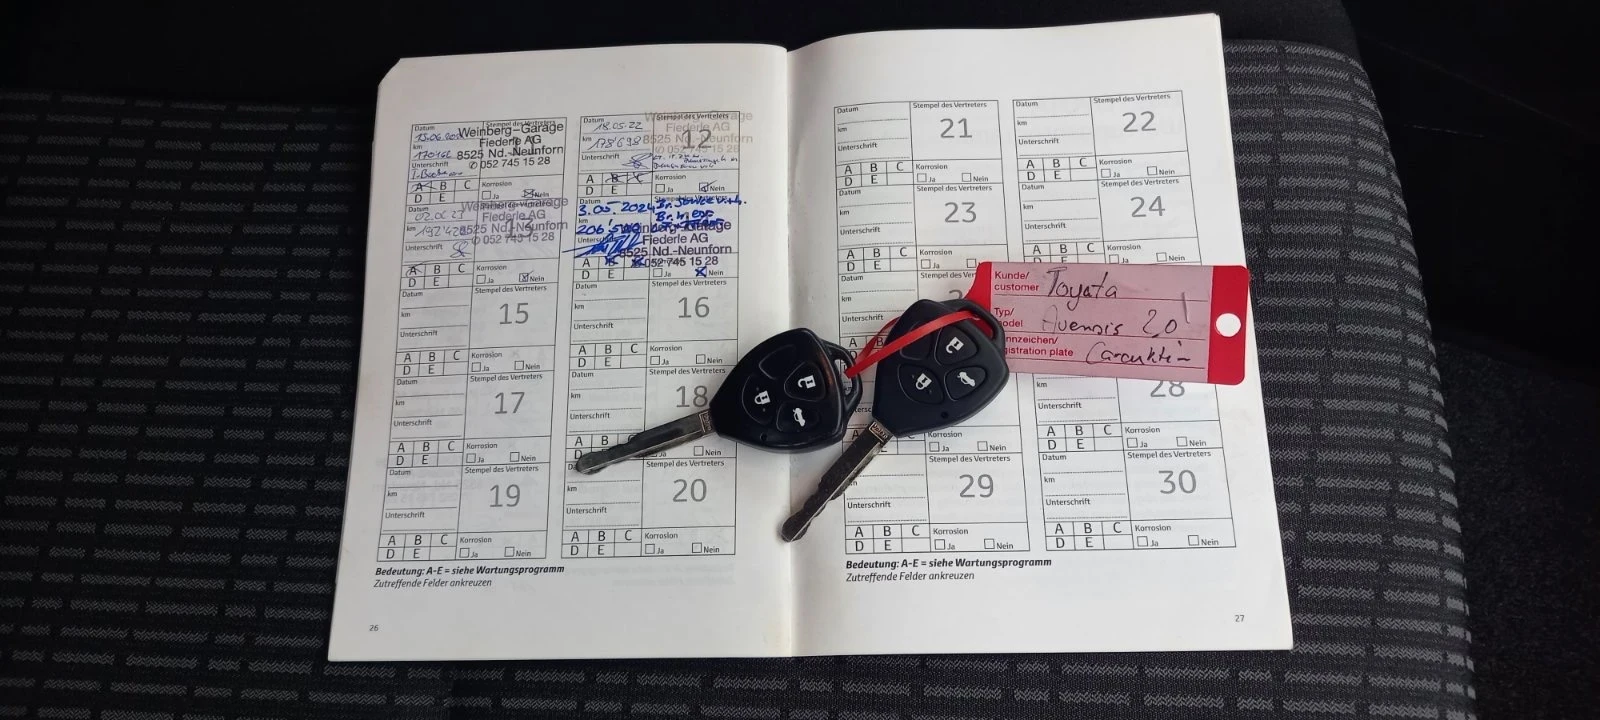 Datum
Stempel des Vertreters
15.06.
Weinberg-Garage
Fiederle AG
km
8525 Nd.-Neunforn
Unterschrift
✆ 052 745 15 28
A B C
D E
Korrosion
Ja Nein
Datum
Stempel des Vertreters
18.05.22
12
Weinberg-Garage
Fiederle AG
km
178'698
8525 Nd.-Neunforn
Unterschrift
✆ 052 745 15 28
A B C
D E
Korrosion
Ja Nein
Weinberg-Garage
Fiederle AG
km
8525 Nd.-Neunforn
13
Unterschrift
✆ 052 745 15 28
A B C
D E
Korrosion
Ja Nein
3.05.2024
km
Weinberg-Garage
Fiederle AG
8525 Nd.-Neunforn
052 745 15 28
A B C
D E
Ja Nein
Datum
Stempel des Vertreters
15
km
Unterschrift
A B C
D E
Korrosion
Ja Nein
Datum
Stempel des Vertreters
16
km
Unterschrift
A B C
D E
Korrosion
Ja Nein
Datum
Stempel des Vertreters
17
km
Unterschrift
A B C
D E
Korrosion
Ja Nein
Datum
18
km
Unterschrift
A B
D
Nein
Datum
Stempel des Vertreters
19
km
Unterschrift
A B C
D E
Korrosion
Ja Nein
Datum
Stempel des Vertreters
20
km
Unterschrift
A B C
D E
Korrosion
Ja Nein
Bedeutung: A-E = siehe Wartungsprogramm
Zutreffende Felder ankreuzen
26
Datum
Stempel des Vertreters
21
km
Unterschrift
A B C
D E
Korrosion
Ja Nein
Datum
Stempel des Vertreters
22
km
Unterschrift
A B C
D E
Korrosion
Ja Nein
Datum
Stempel des Vertreters
23
km
Unterschrift
A B C
D E
Korrosion
Ja
Datum
Stempel des Vertreters
24
km
Unterschrift
A B C
Korrosion
Datum
km
Unterschrift
Kunde/
customer Toyota
Typ/
Avensis 2.0
registration plate
28
Unterschrift
A B C
D E
Korrosion
Ja Nein
Korrosion
Ja Nein
Stempel des Vertreters
29
km
Unterschrift
A B C
D E
Korrosion
Ja Nein
Datum
Stempel des Vertreters
30
km
Unterschrift
A B C
D E
Korrosion
Ja Nein
Bedeutung: A-E = siehe Wartungsprogramm
Zutreffende Felder ankreuzen
27